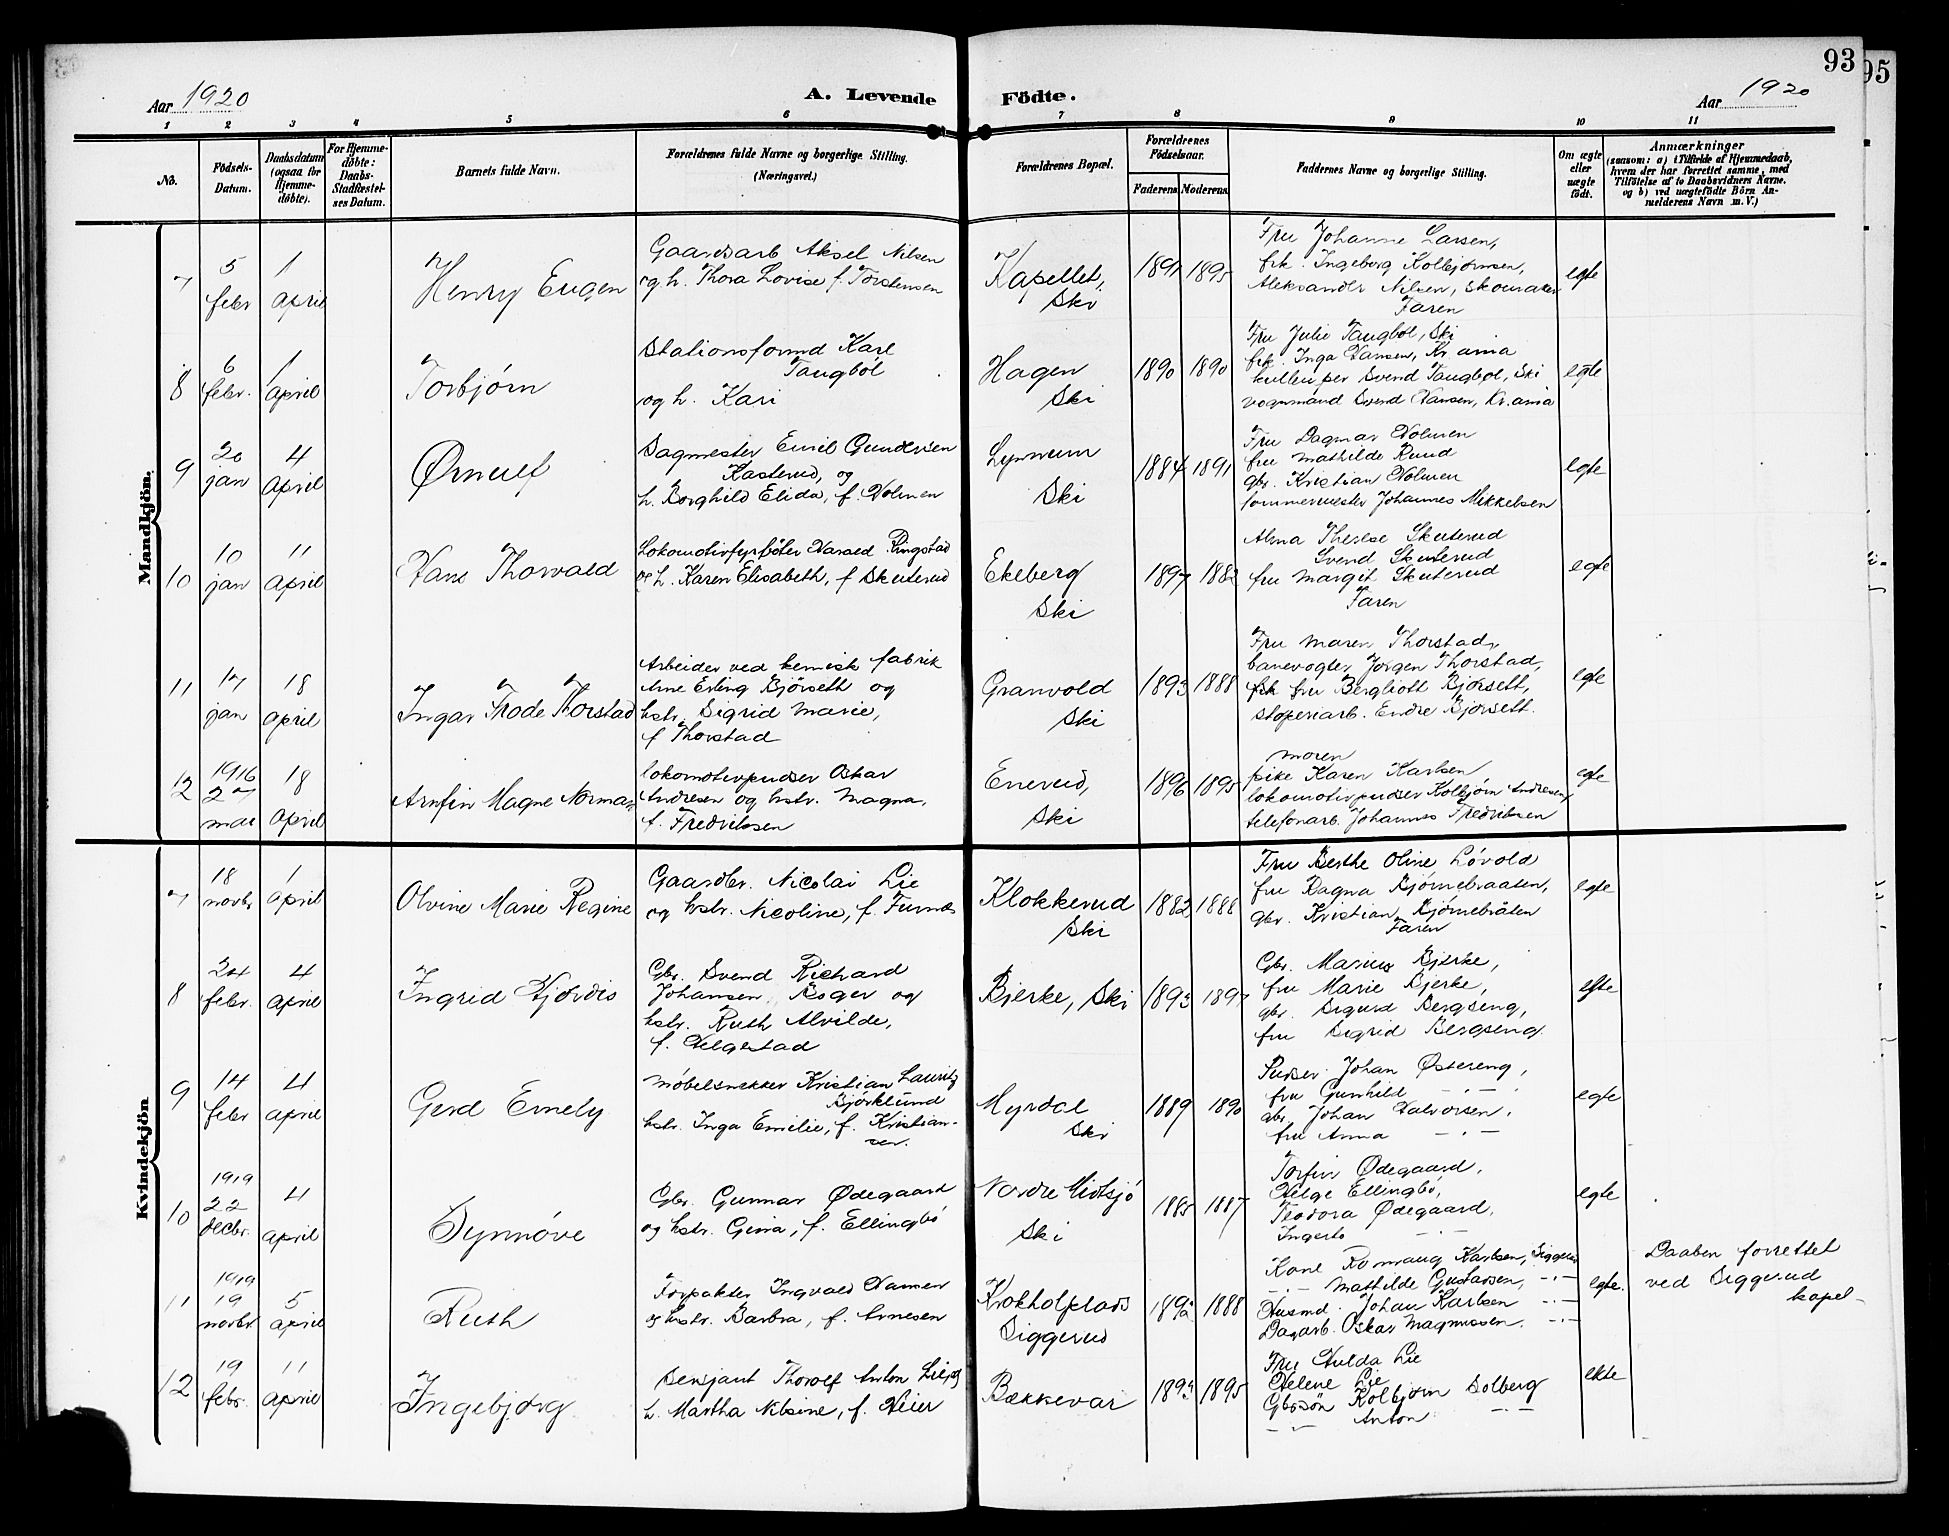 93
95
Aar 1920
A. Levende Födte.
Aar 1920
1 2 3 4 5 6 7 8 9 10 11
No.
Födsels-Datum.
Daabsdatum (ogsaa for Hjemme-döbte).
For Hjemme-döbte: Daabs-Stadfæstel-ses Datum.
Barnets fulde Navn.
Forældrenes fulde Navne og borgerlige Stilling. (Næringsvei.)
Forældrenes Bopæl.
Forældrenes Födselsaar.
Faderens. Moderens.
Faddernes Navne og borgerlige Stilling.
Om ægte eller uægte födt.
Anmærkninger
(saasom: a) i Tilfælde af Hjemmedaab,
hvem der har forrettet samme, med
Tilföielse af to Daabsvidners Navne.
og b) ved uægtefödte Börn An-
melderens Navn m. V.)
Mandkjön.
7
5 febr
1 april
Henry Eugen
Gaardsarb Aksel Nilsen
og h. Thora Lovise f. Torstensen
Kapellet,
Ski
1891 1895
Fru Johanne Larsen,
frk. Ingeborg Kolbjørnsen,
Aleksander Nilsen, skomaker
Faren
egte
8
6 febr.
1 april
Torbjørn
Stationsformd Karl
Taugbøl
og h. Kari
Hagen
Ski
1890 1890
Fru Julie Taugbøl, Ski
frk. Inga Hansen, Kr.ania
Svend Taugbøl, Ski
vognmand Svend Hansen, Kr.ania
egte
9
20 jan
4 april
Ørnulf
Sagmester Emil Gundersen
Kasterud, og
h. Borghild Elida, f. Holmen
Ski
1884 1891
Fru Dagmar Holmen
fru Mathilde Ruud
gbr. Kristian Holmen
Johannes Mikkelsen
egte
10
10 jan
11 april
Hans Thorvald
Lokomotivfyrbøter Harald Ringstad
og h. Karen Elisabeth, f Skuterud
Ekeberg
Ski
1897 1882
Alma Therese Skuterud
Svend Skuterud
fru Margit Skuterud
Faren
egte
11
17 jan
18 april
Ingar Frode Thorstad
Arbeider ved kemisk fabrik
Arne Erling Bjørseth og
hstr. Sigrid Marie,
f Thorstad
Granvold
Ski
1893 1888
Fru Maren Thorstad,
banevogter Jørgen Thorstad,
frk fru Bergliott Bjørsett,
støperiarb. Endre Bjørsett.
egte
12
1916
27 mar
18 april
Arnfin Magne Norman
lokomotivpudser Oskar
Andresen og hstr. Magna,
f. Fredriksen
Enerud,
Ski
1896 1895
moren
pike Karen Karlsen
lokomotivpudser Kolbjørn Andresen,
telefonarb. Johannes Fredriksen
egte
Kvindekjön
7
18 novbr
1 april
Olvine Marie Regine
Gaardbr. Nicolai Lie
og hstr. Nicoline, f. Furnes
Klokkerud
Ski
1882 1888
Fru Berthe Oline Løvold
fru Ragna Bjørnebraaten,
gbr. Kristian Bjørnebråten
Faren
egte
8
24 febr.
4 april
Ingrid Hjørdis
Gbr. Svend Richard
Johansen Boger og
hstr. Ruth Alvilde,
f. Helgestad
Bjerke, Ski
1893 1897
Gbr. Marius Bjerke,
fru Marie Bjerke,
gbr. Sigurd Bergseng,
fru Sigrid Bergseng
egte
9
14 febr
4 april
Gerd Emely
Møbelsnekker Kristian Lauritz
Bjørklund
hstr. Inga Emilie, f. Kristian-
sen.
Myrdal
Ski
1889 1890
Pudser Johan Østereng,
fru Gunhild — . —
gbr. Johan Halvorsen,
fru Anna — . —
egte
10
1919
22 decbr.
4 april
Synnøve
Gbr. Gunnar Ødegaard
og hstr. Gina, f. Ellingbø
Nordre Midtsjø
Ski
1885 1887
Torfin Ødegaard,
Helge Ellingbø,
Teodora Ødegaard,
— . —
egte
11
1919
19 novbr
5 april
Ruth
Forpakter Ingvald Hansen
og hstr. Barbra, f. Arnesen
Krokholplads
Siggerud
1892 1888
Kone Romaug Karlsen, Siggerud
— . — Mathilde Gustavsen, — . —
Husmd. Johan Karlsen — . —
Dagarb. Oskar Magnussen. — . —
egte.
Daaben forrettet
ved Siggerud
kapel.
12
19 febr.
11 april
Ingebjørg
Sersjant Thorolf Anton Lie og
h. Martha Nilsine, f. Heier
Bækkevar
1893 1895
Fru Hulda Lie
Helene Lie
Gbrsøn Kolbjørn Solberg
— . — Anton — . —
ekte